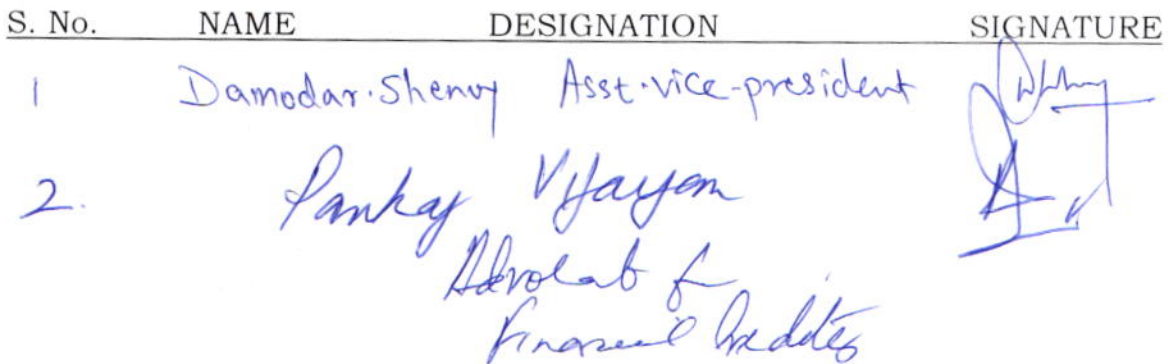 S. No. NAME DESIGNATION SIGNATURE
1 Damodar.Shenoy Asst.vice-president
2. Pankaj Vijayan
Advocate for
Financial Creditor